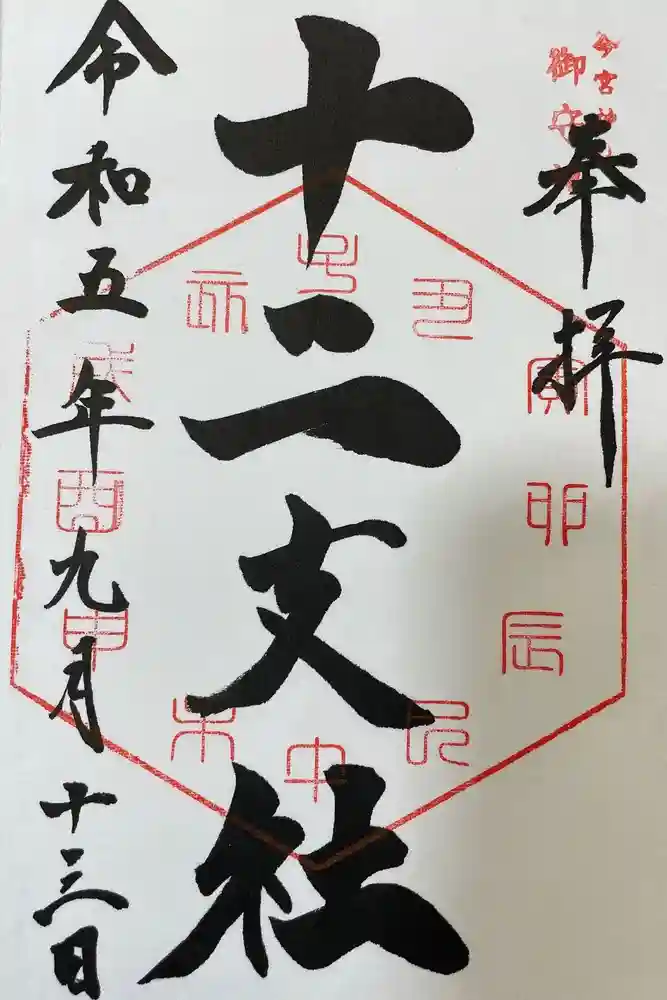 今宮
御守
奉拝
十二支社
令和五年九月十三日
子
丑
寅
卯
辰
巳
午
未
申
酉
戌
亥